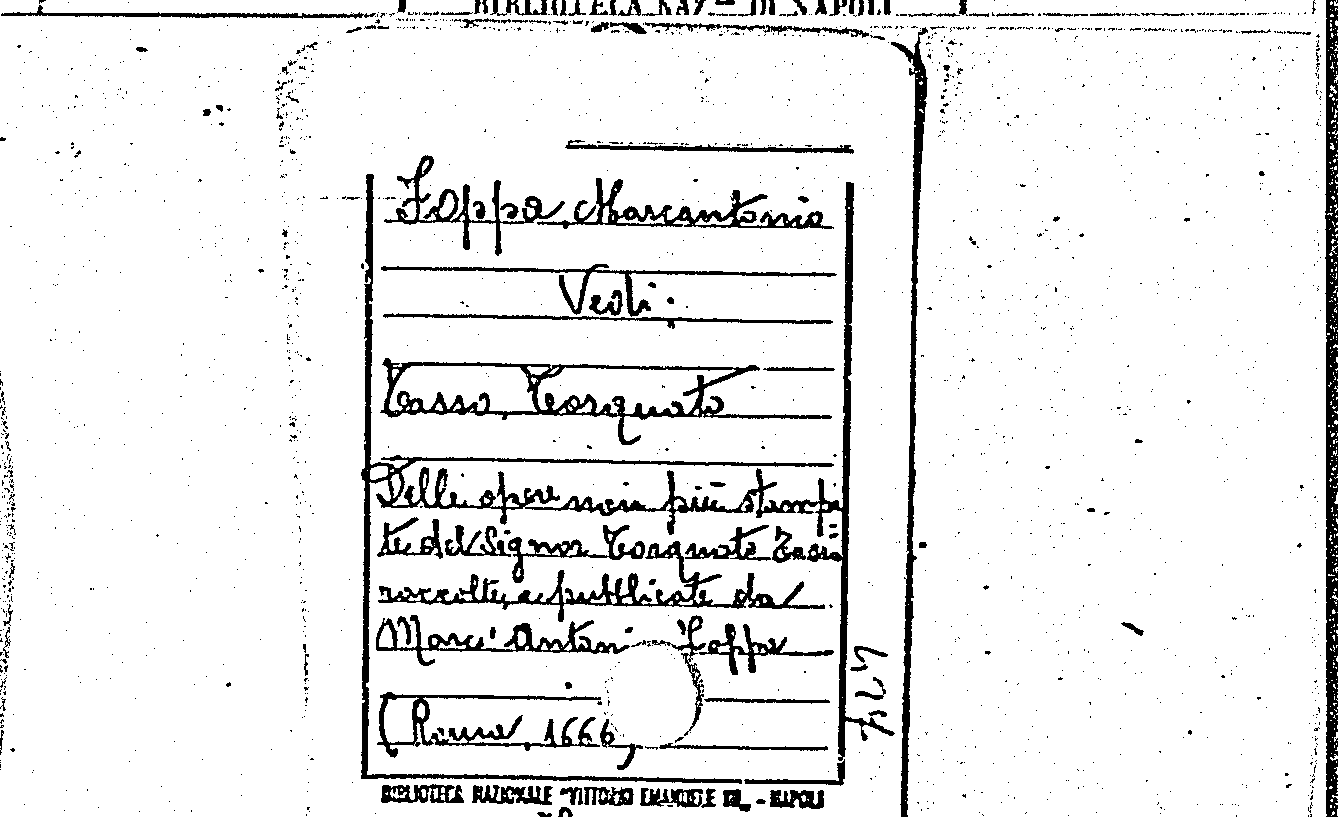 BIBLIOTECA NAZ — DI NAPOLI
Foppa, Marcantonio
Vedi:
Tasso, Torquato
Delle opere non più stampa
te del Signor Torquato Tasso
raccolte, e pubblicate da
Marc' Antoni Foppa
(Roma, 1666)
BIBLIOTECA NAZIONALE "VITTORIO EMANUELE III„ - NAPOLI